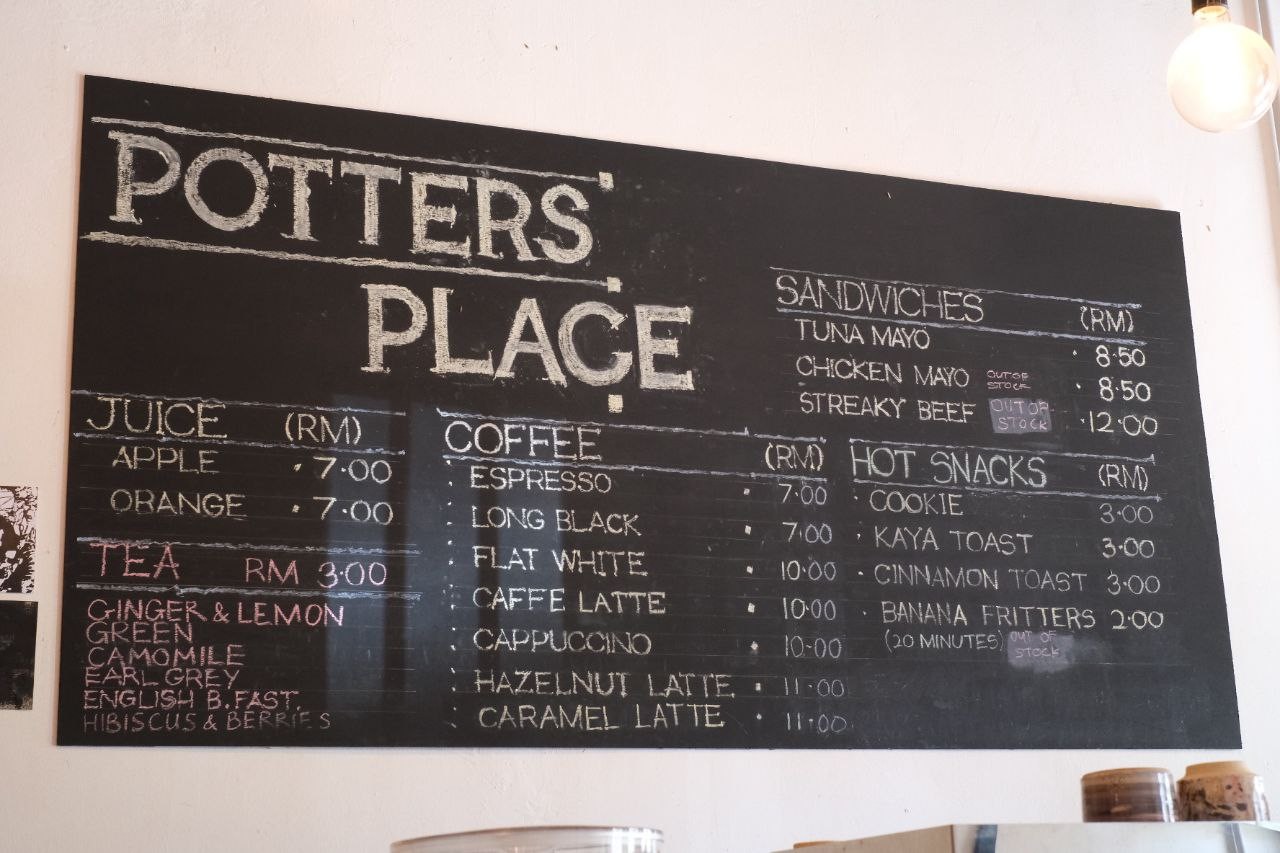 POTTERS
PLACE
JUICE (RM)
APPLE · 7.00
ORANGE · 7.00
TEA RM 3.00
GINGER & LEMON
GREEN
CAMOMILE
EARL GREY
ENGLISH B.FAST.
HIBISCUS & BERRIES
COFFEE (RM)
: ESPRESSO · 7.00
: LONG BLACK · 7.00
: FLAT WHITE · 10.00
: CAFFE LATTE · 10.00
: CAPPUCCINO · 10.00
: HAZELNUT LATTE · 11.00
: CARAMEL LATTE · 11.00
SANDWICHES (RM)
TUNA MAYO · 8.50
CHICKEN MAYO OUT OF STOCK · 8.50
STREAKY BEEF OUT OF STOCK · 12.00
HOT SNACKS (RM)
· COOKIE 3.00
· KAYA TOAST 3.00
· CINNAMON TOAST 3.00
· BANANA FRITTERS 2.00
(20 MINUTES) OUT OF STOCK